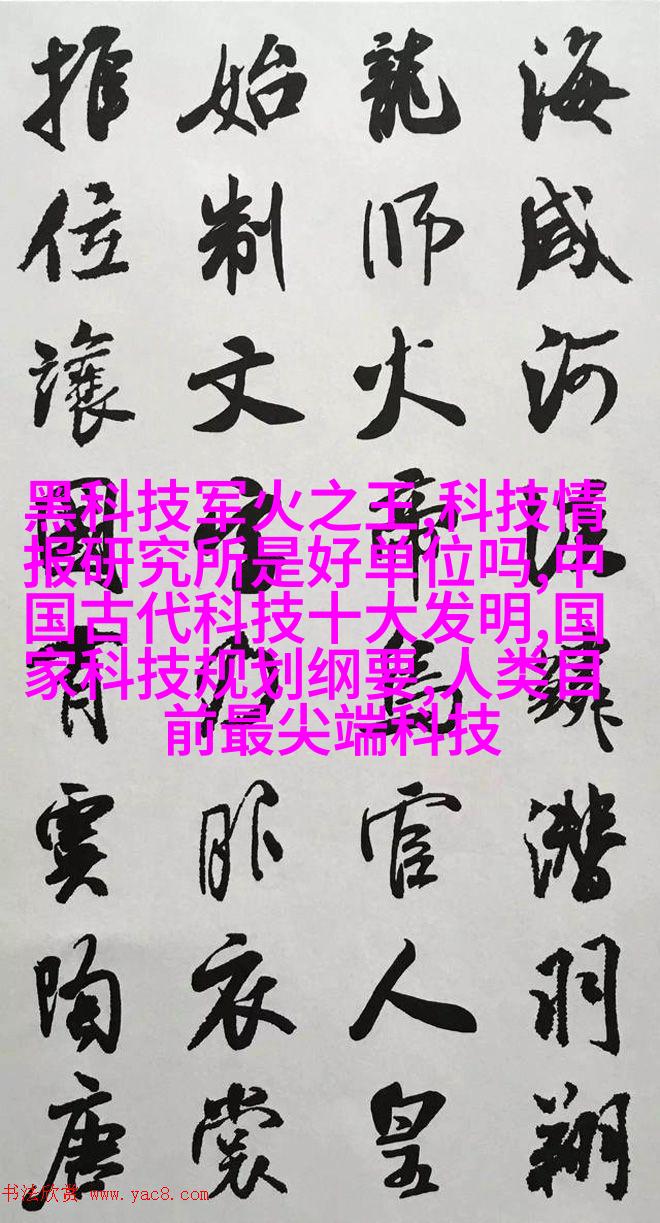 海咸河淡鱗潛羽翔
龍師火帝鳥官人皇
始制文字乃服衣裳
推位讓國有虞陶唐
黑科技军火之王,科技情
报研究所是好单位吗,中
国古代科技十大发明,国
家科技规划纲要,人类目
前最尖端科技
书法欣赏 www.yac8.com